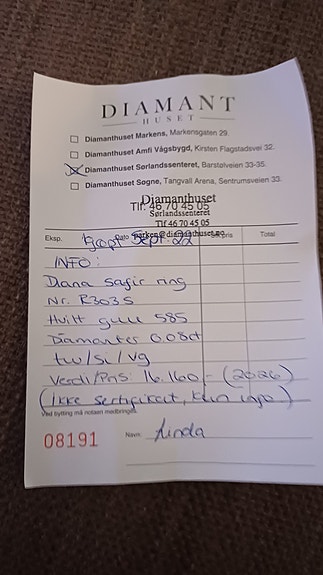 DIAMANT
HUSET
Diamanthuset Markens, Markensgaten 29.
Diamanthuset Amfi Vågsbygd, Kirsten Flagstadsvei 32.
Diamanthuset Sørlandssenteret, Barstølveien 33-35.
Diamanthuset Søgne, Tangvall Arena, Sentrumsveien 33.
Diamanthuset
Tlf. 46 70 45 05
Sørlandssenteret
Tlf 46 70 45 05
Eksp. Dato markens@diamanthuset.no pris Total
Kjøpt Sept. 22
INFO:
Diana safir ring
Nr. R303S
Hvitt gull 585
Diamanter 0.08ct
tw/si/vg
Verdi/Pris: 16.160,- (2026)
(Ikke sertifikat, kun info)
Ved bytting må notaen medbringes.
08191 Navn: Linda